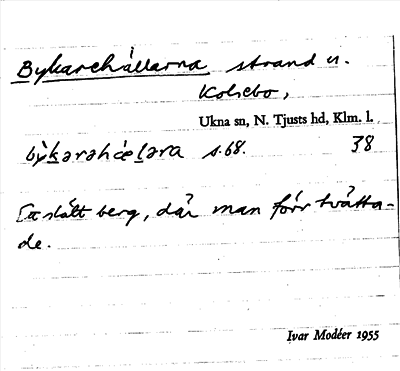 Bykarehällarna strand u.
Kolsebo,
Ukna sn, N. Tjusts hd, Klm. l.
by̍karahæļara s. 68. 38
Ett slätt berg, där man förr tvätta-
de.
Ivar Modéer 1955